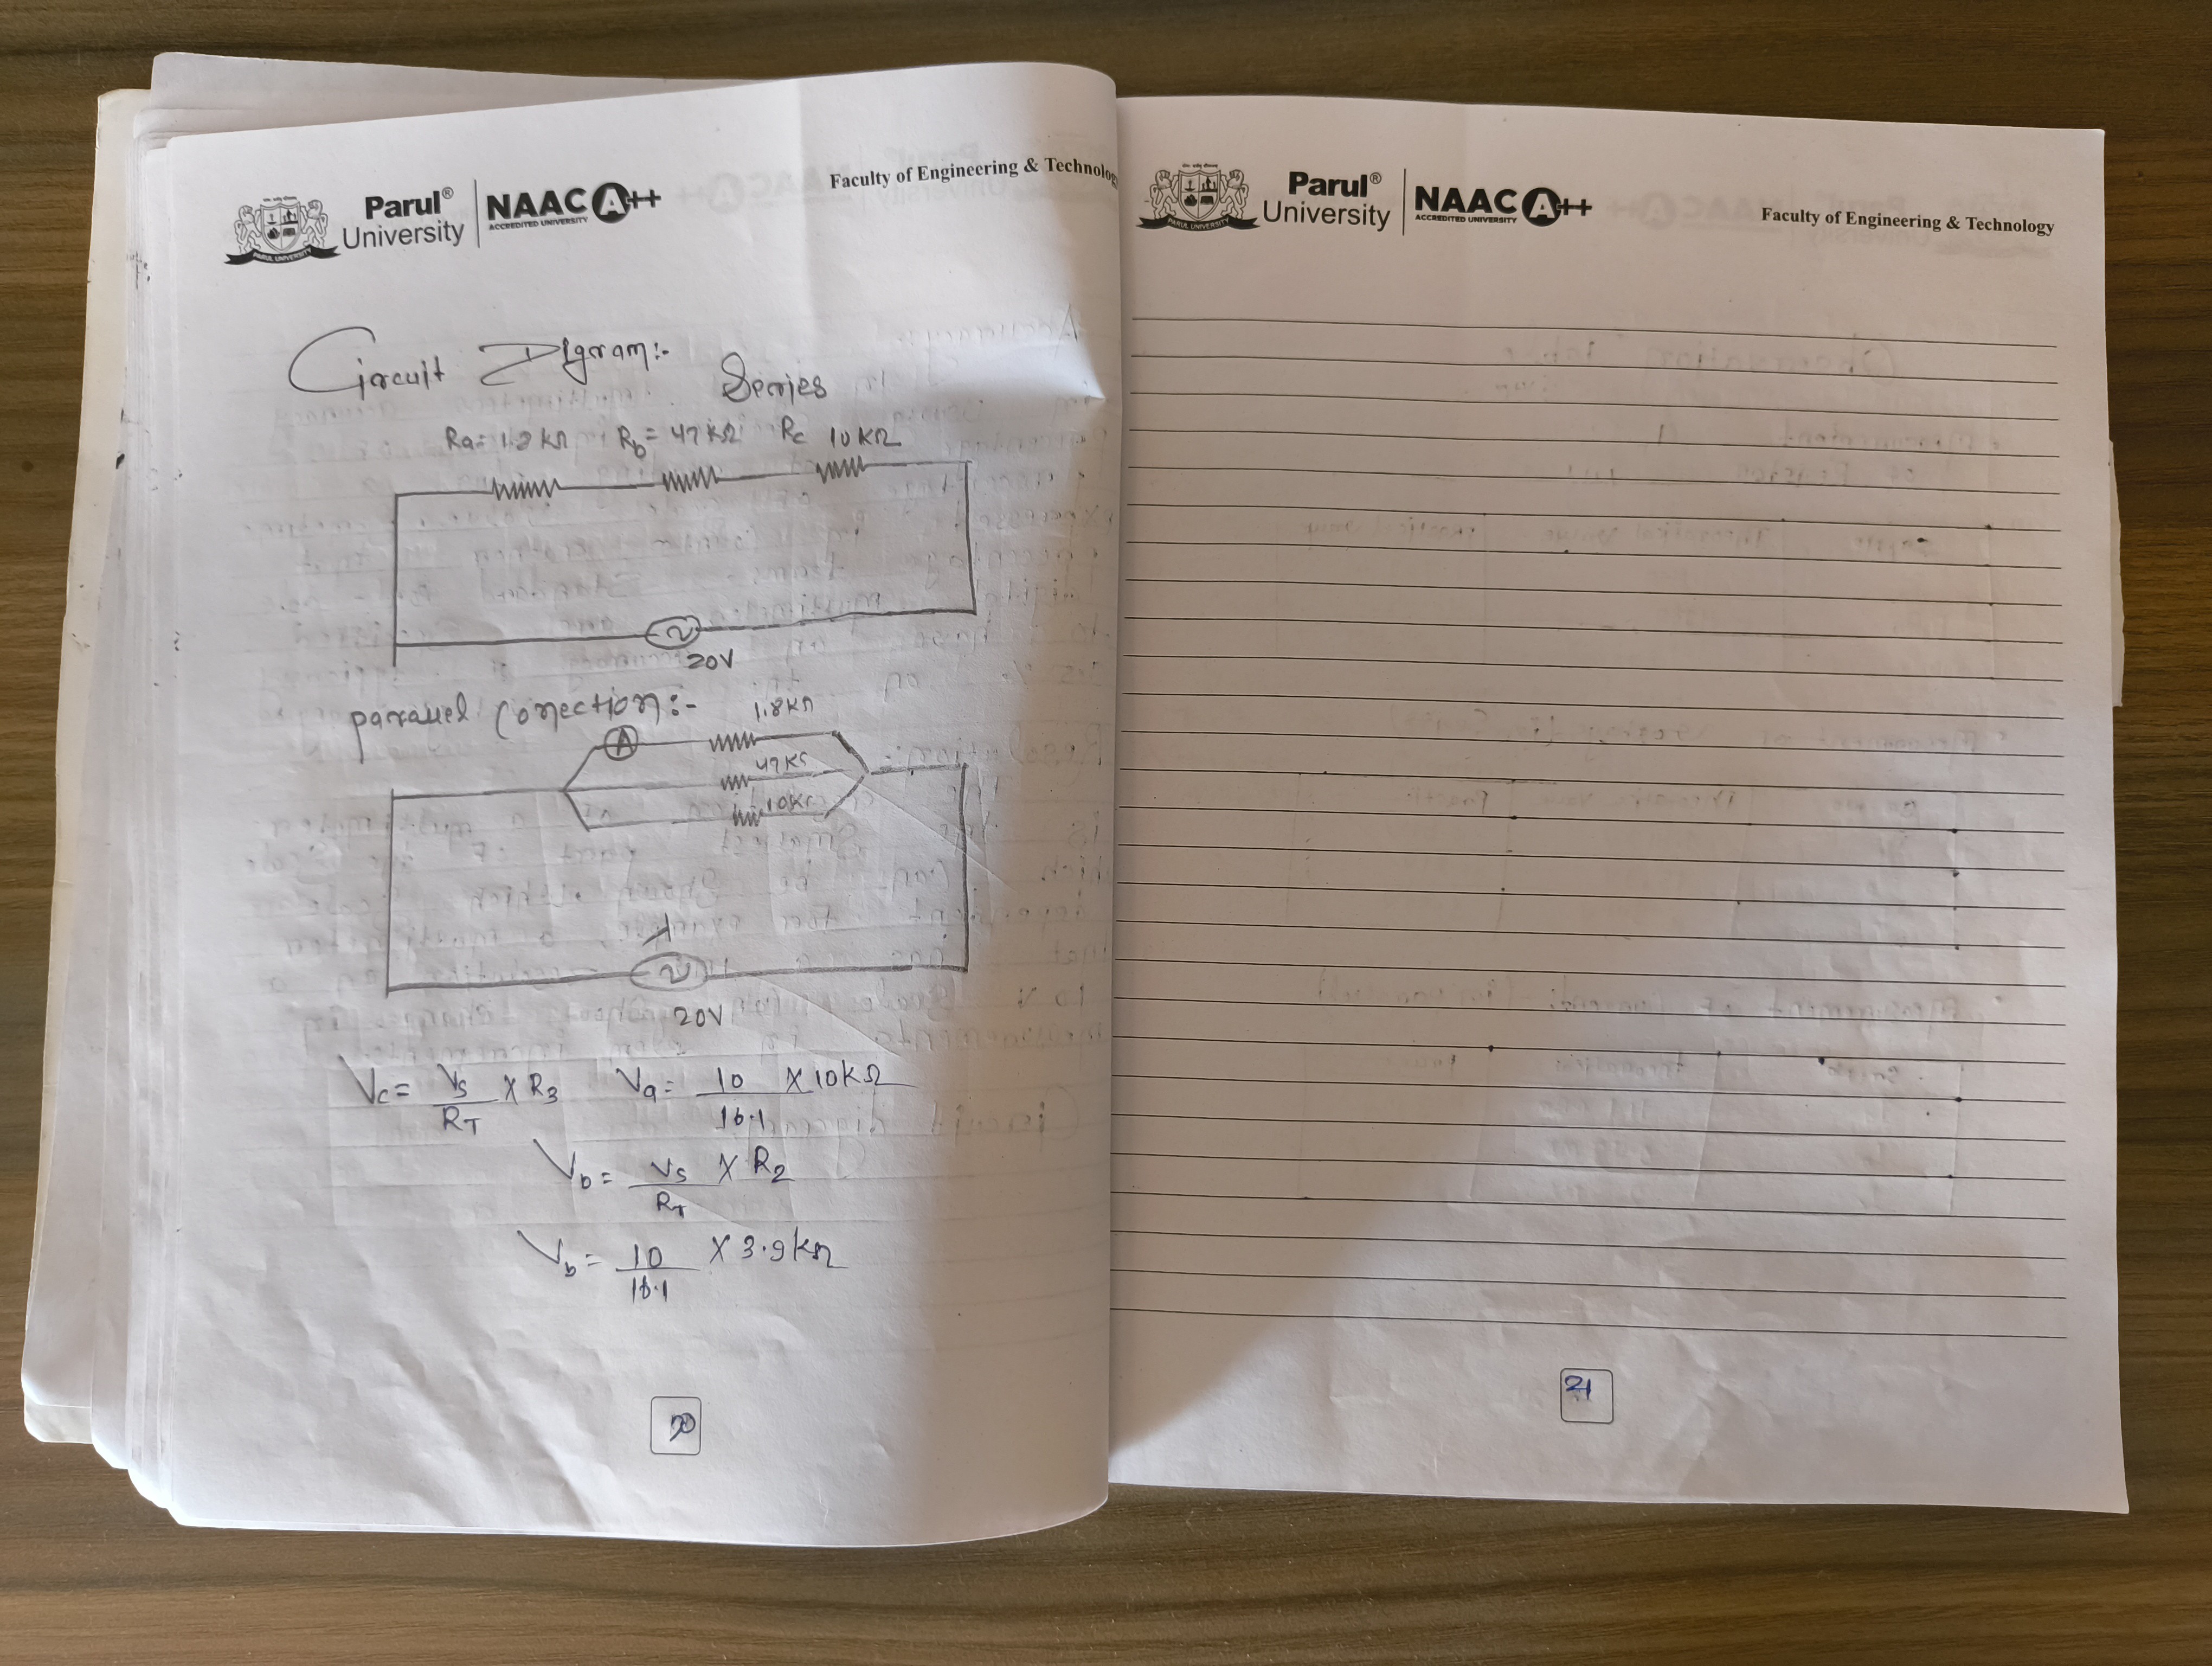 Parul®
University
NAAC A++
ACCREDITED UNIVERSITY
PARUL UNIVERSITY
Faculty of Engineering & Technology
Circuit DIgram:-
Series
Ra= 1.2 kΩ Rb= 47 kΩ Rc 10 KΩ
20V
parallel Conection:-
1.8KΩ
A
47KΩ
10KΩ
20V
Vc= Vs/RT X R3 Va= 10/16.1 X 10KΩ
Vb= Vs/RT X R2
Vb= 10/16.1 X 3.9KΩ
20
Parul®
University
NAAC A++
ACCREDITED UNIVERSITY
PARUL UNIVERSITY
Faculty of Engineering & Technology
21